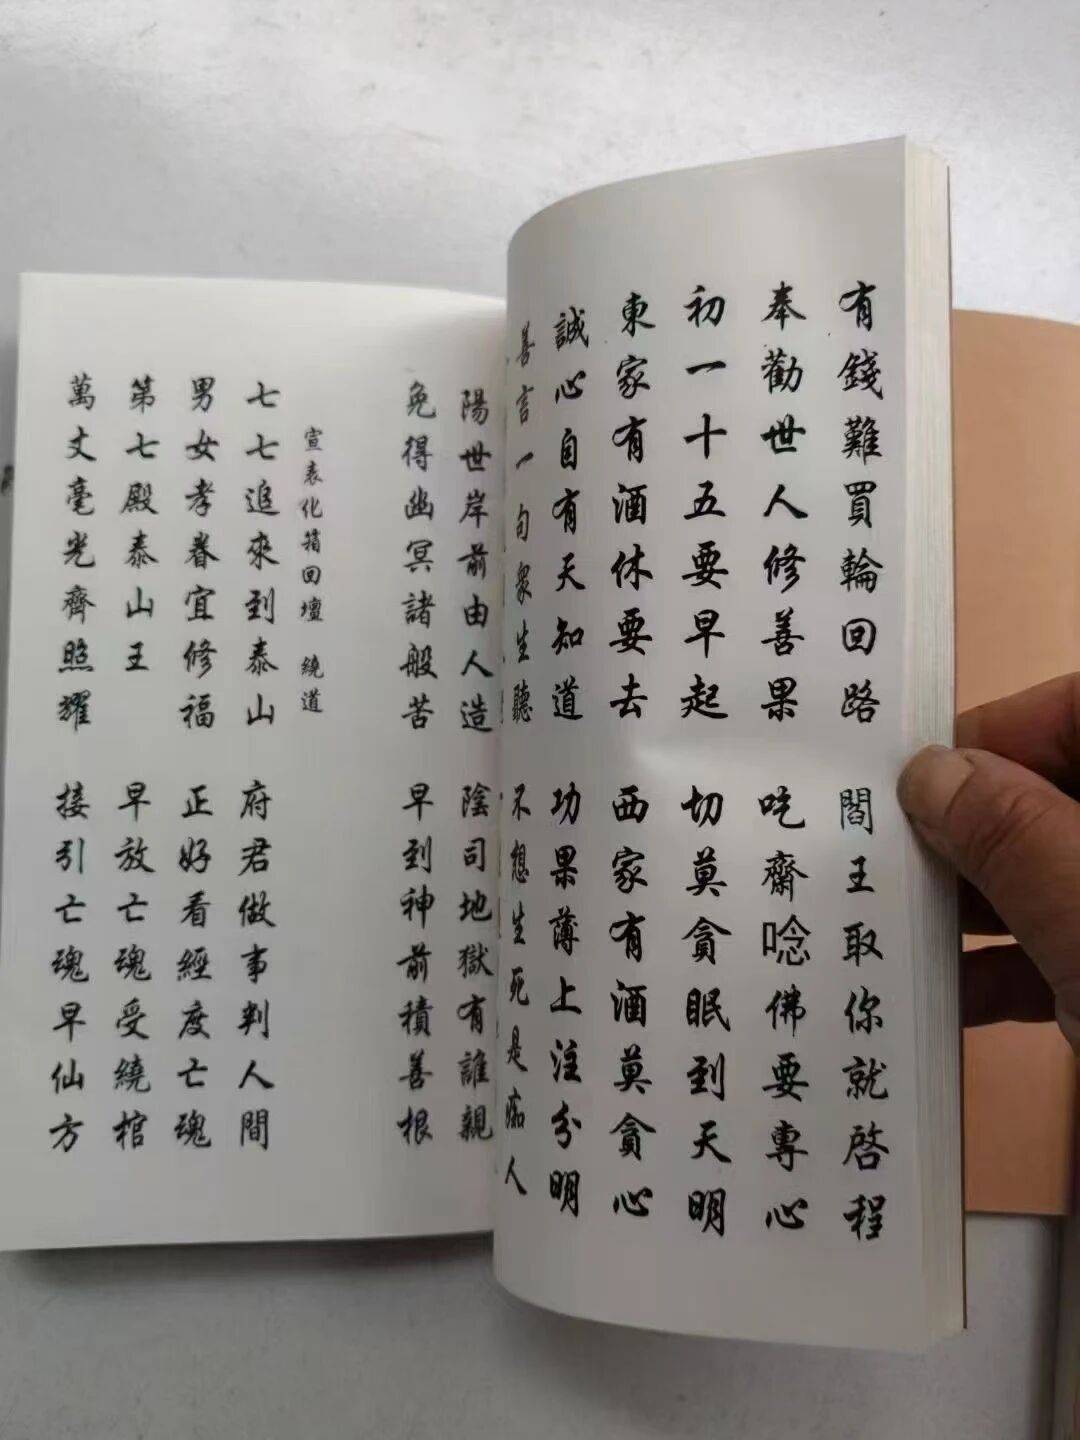 有錢難買輪回路 閻王取你就啓程
奉勸世人修善果 吃齋唸佛要專心
初一十五要早起 切莫貪眠到天明
東家有酒休要去 西家有酒莫貪心
誠心自有天知道 功果薄上注分明
善言一句衆生聽 不想生死是痴人
陽世岸前由人造 陰司地獄有誰親
免得幽冥諸般苦 早到神前積善根
宣表化箱回壇 繞道
七七追來到泰山 府君做事判人間
男女孝眷宜修福 正好看經度亡魂
第七殿泰山王 早放亡魂受繞棺
萬丈毫光齊照耀 接引亡魂早仙方